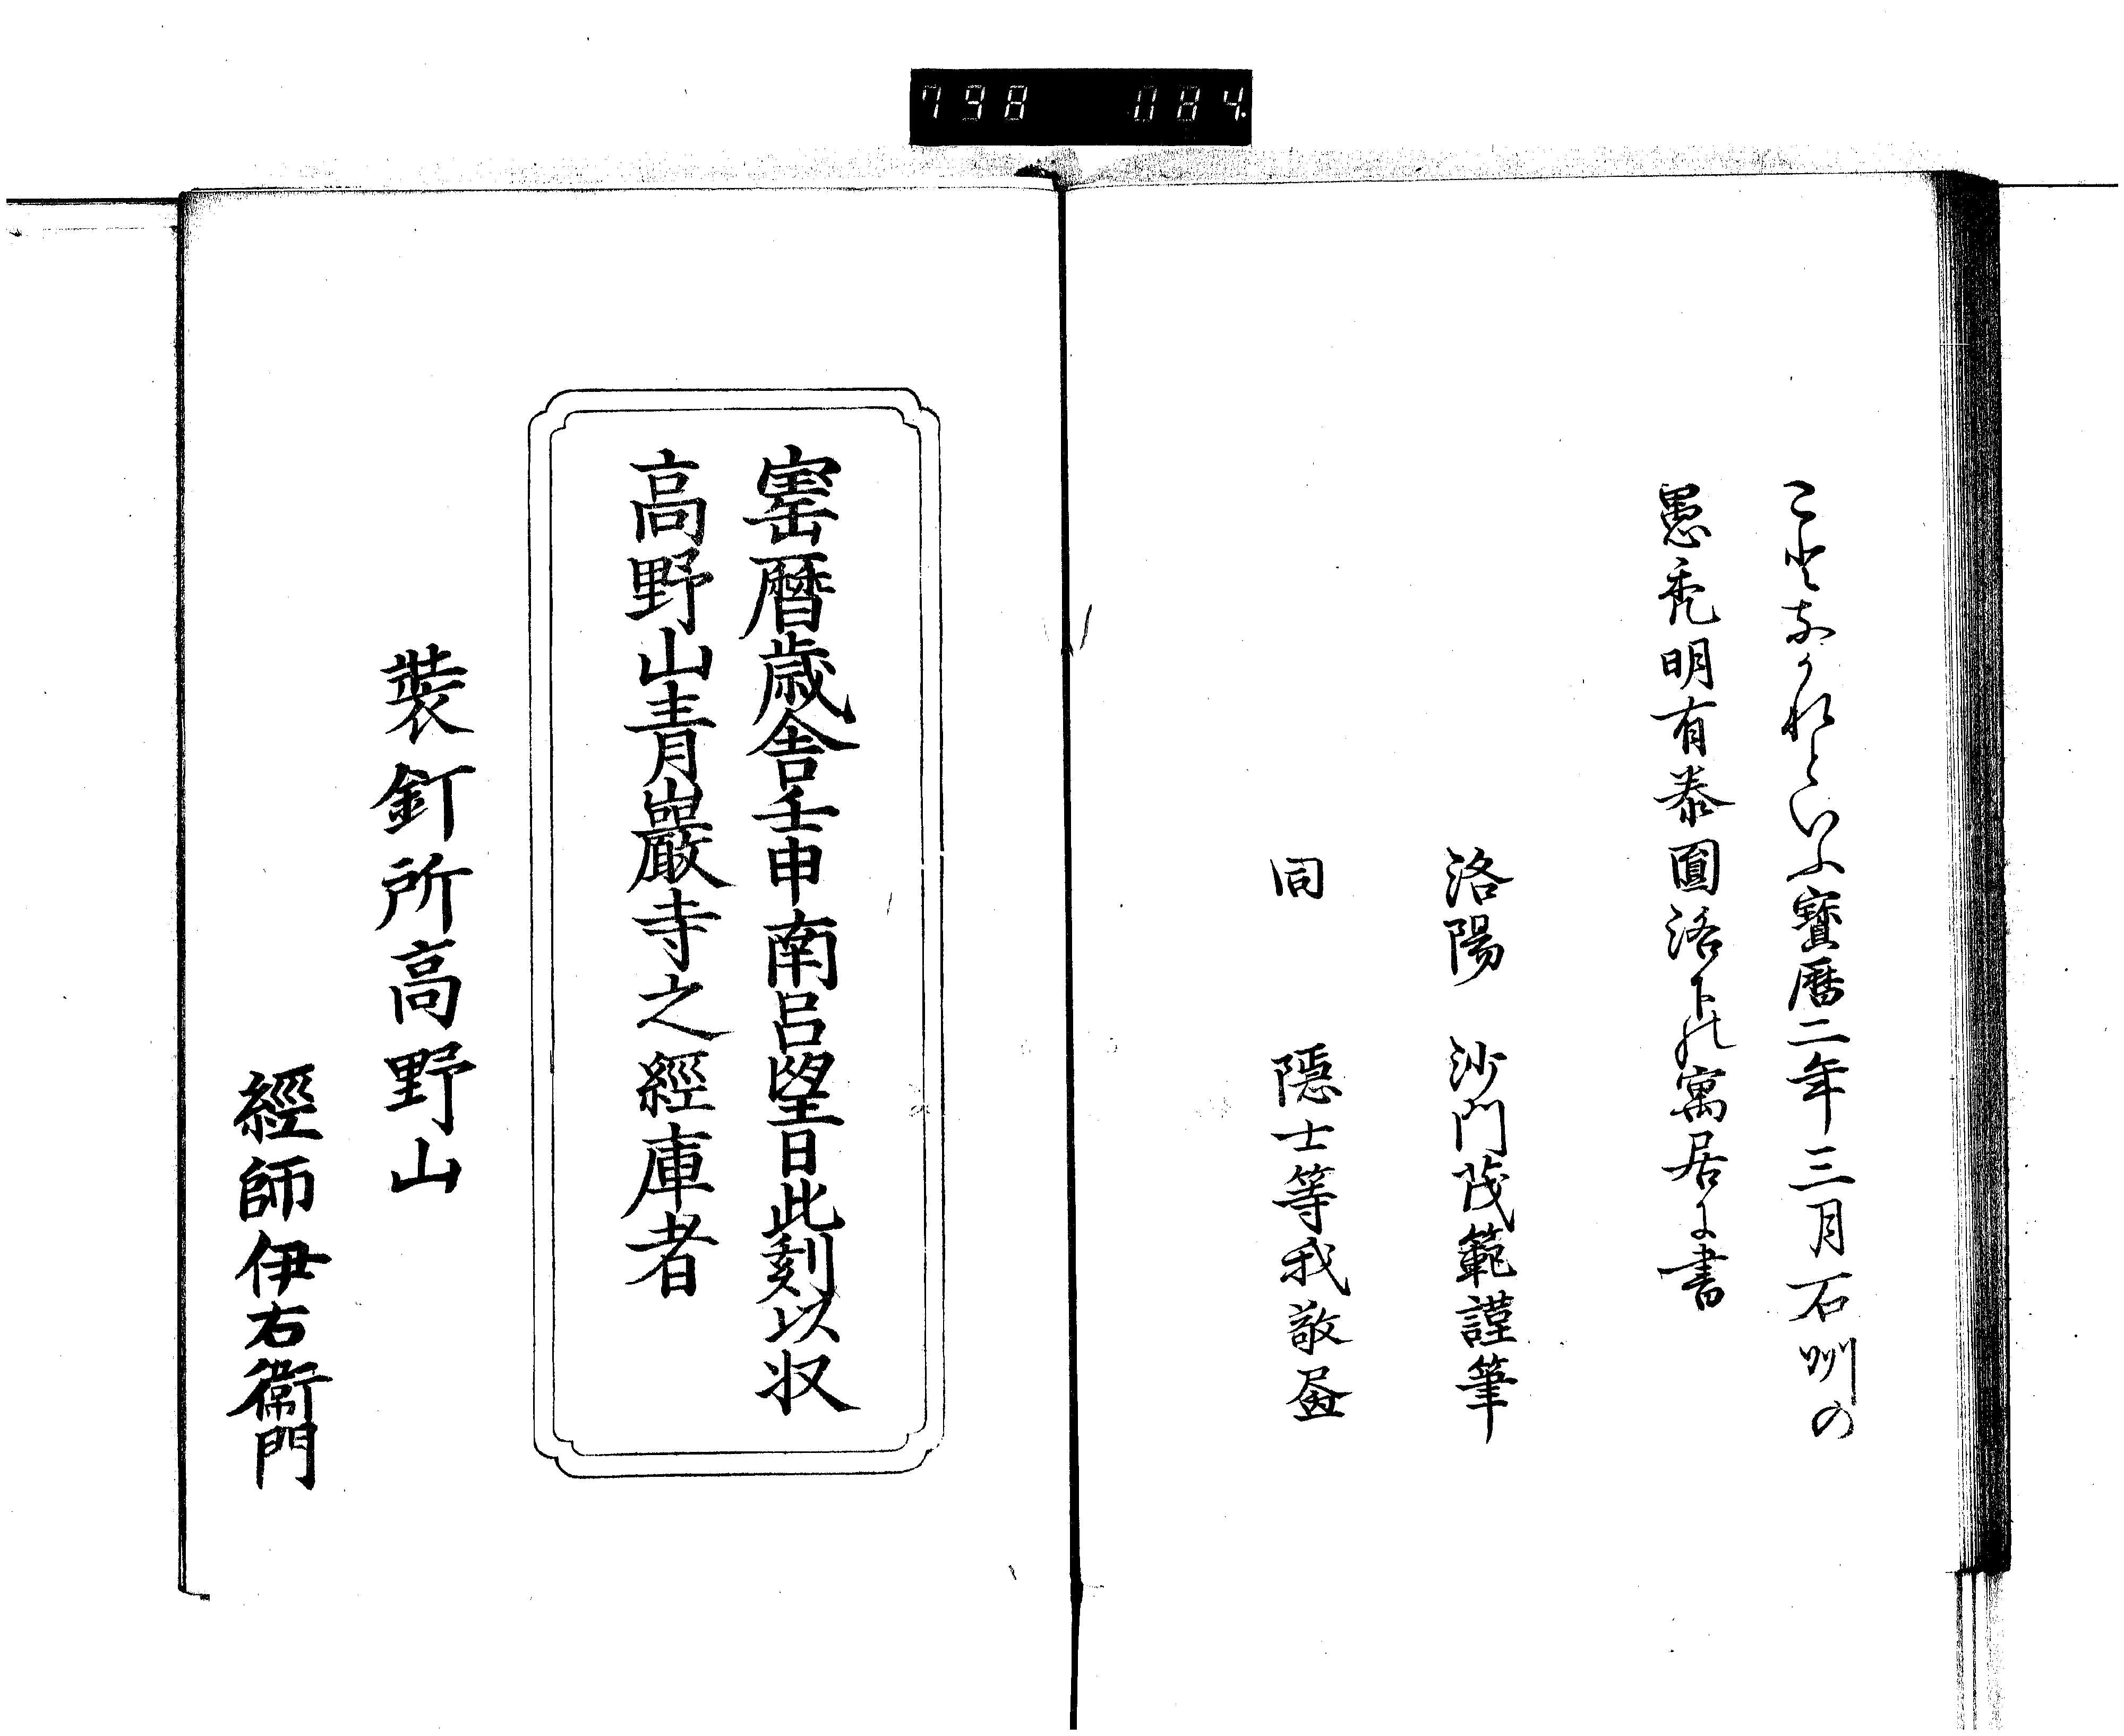 798 084
ことなかれといふ寳暦二年三月石州の
愚禿明有泰圓洛下の寓居に書
洛陽 沙門茂範謹筆
同 隠士等我敬畫
寚暦歳舎壬申南呂望日此刻以収
高野山青巖寺之經庫者
裝釘所高野山
經師伊右衞門